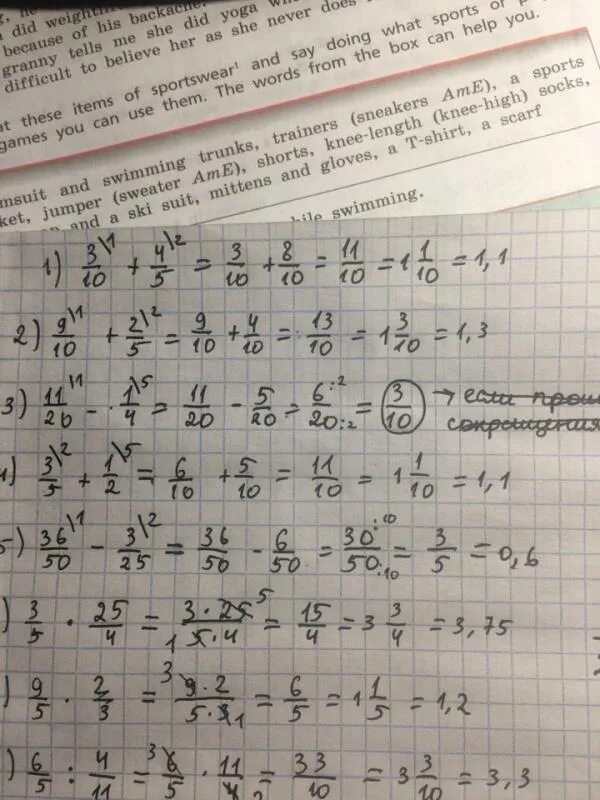 did weight
because of his backache.
granny tells me she did yoga
difficult to believe her as she never does
at these items of sportswear¹ and say doing what sports or
games you can use them. The words from the box can help you.
msuit and swimming trunks, trainers (sneakers AmE), a sports
ket, jumper (sweater AmE), shorts, knee-length (knee-high) socks,
and a ski suit, mittens and gloves, a T-shirt, a scarf
while swimming.
1) 3/10 \1 + 4/5 \2 = 3/10 + 8/10 = 11/10 = 1 1/10 = 1,1
2) 9/10 \1 + 2/5 \2 = 9/10 + 4/10 = 13/10 = 1 3/10 = 1,3
3) 11/20 \1 - 1/4 \5 = 11/20 - 5/20 = 6:2/20:2 = 3/10 → если прои
сокращения
4) 3/5 \2 + 1/2 \5 = 6/10 + 5/10 = 11/10 = 1 1/10 = 1,1
5) 36/50 \1 - 3/25 \2 = 36/50 - 6/50 = 30:10/50:10 = 3/5 = 0,6
) 3/5 · 25/4 = 3 · 25 5/1 5 · 4 = 15/4 = 3 3/4 = 3,75
) 9/5 · 2/3 = 3 9 · 2/5 · 3 1 = 6/5 = 1 1/5 = 1,2
) 6/5 : 4/11 = 3 6/5 · 11/4 2 = 33/10 = 3 3/10 = 3,3